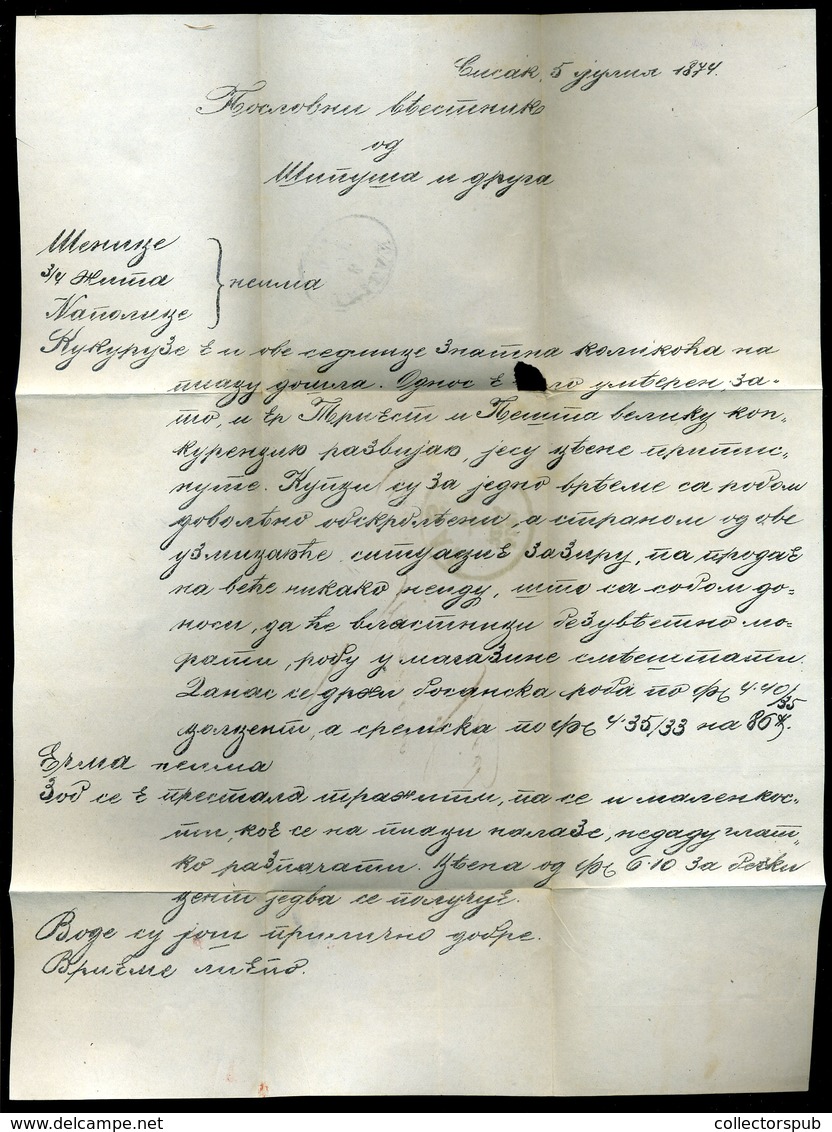 Сисак, 5 јулия 1874.
Пословни вѣстник
од
Шипуша и друга
Шенице
3/4 жита
Наполице
} неима
Кукурузе є и ове седмице знатна количоћа на
пиацу дошла. Однос є умѣрен, за-
то, и єр Триєст и Пешта велику кон-
куренцию развијаю, јесу цѣне притис-
нуте. Купци су за једно врѣме са робом
довольно обскрбльени, а страном од ове
узмицаюће ситуациє зазиру, па продає
на веће никако неиду, што са собом до-
носи, да ће властници безувѣтно мо-
рати, робу у магазине смѣштати.
Данас се држи босанска роба по ф. 4.40/35
цолцент, а сремска по ф. 4.35/33 на 86 ℔.
Єчма неима
Зоб се є престала тражити, па се и маленкос-
ти, коє се на пиаци налазе, недаду глат-
ко разпачати. Цѣна од ф. 6.10 за бечки
цент једва се получує.
Воде су још прилично добре.
Вриєме лиєпо.
collectorspub